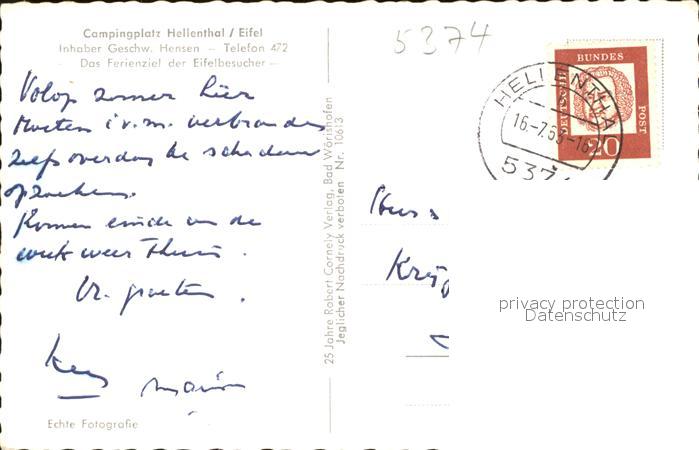 Campingplatz Hellenthal / Eifel
Inhaber Geschw. Hensen — Telefon 472
Das Ferienziel der Eifelbesucher —
5374
Volop zomer hier
Moeten i.v.m. verbranden
zelfs overdag de schaduw
opzoeken.
Komen einde van de
week weer thuis.
Vr. groeten.
Kees
Echte Fotografie
25 Jahre Robert Cornely Verlag, Bad Wörishofen
Jeglicher Nachdruck verboten Nr. 10613
HELLENTHA
16.-7.63-16
537
DEUTSCHE
BUNDES
POST
20
privacy protection
Datenschutz